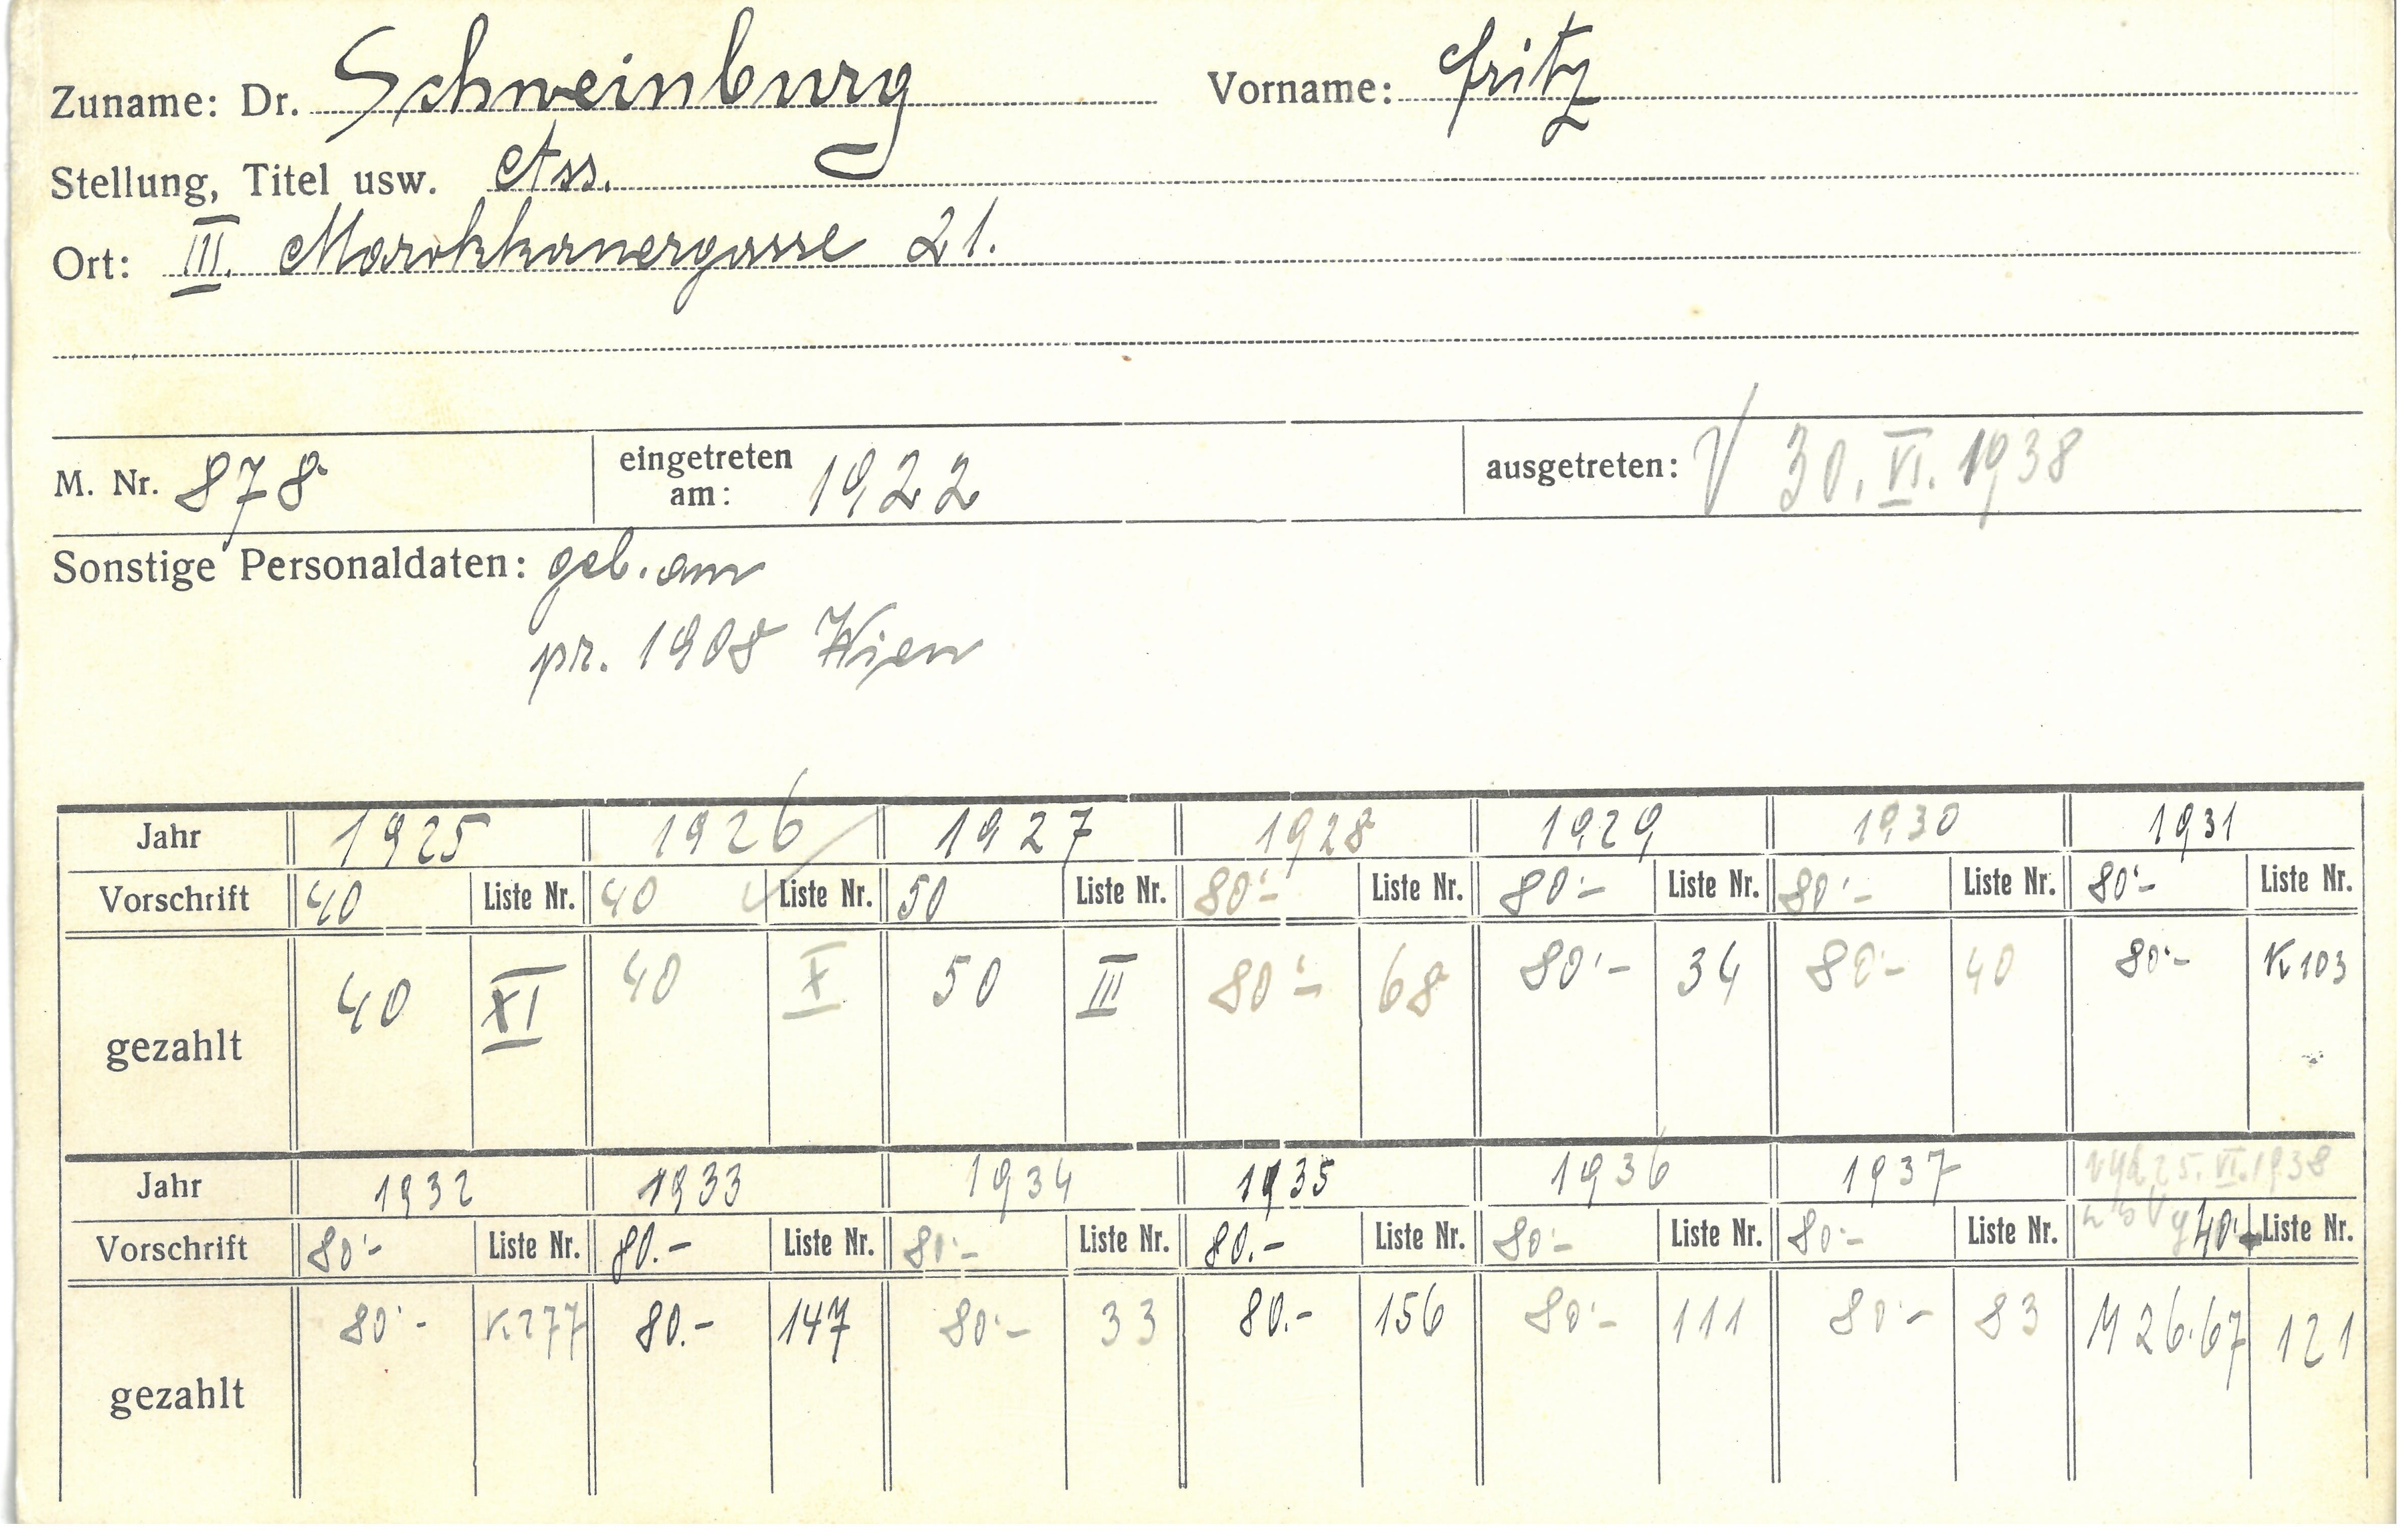 Zuname: Dr. Schweinburg Vorname: Fritz
Stellung, Titel usw. Ass.
Ort: III. Marokkanergasse 21.
M. Nr. 878 eingetreten am: 1922 ausgetreten: 30. VI. 1938
Sonstige Personaldaten: geb. am
pr. 1908 Wien
Jahr 1925 1926 1927 1928 1929 1930 1931
Vorschrift 40 Liste Nr. 40 Liste Nr. 50 Liste Nr. 80'- Liste Nr. 80'- Liste Nr. 80'- Liste Nr. 80'- Liste Nr.
gezahlt 40 XI 40 X 50 III 80'- 68 80'- 34 80'- 40 80'- K 103
Jahr 1932 1933 1934 1935 1936 1937 25. VI. 1938
Vorschrift 80'- Liste Nr. 80.- Liste Nr. 80'- Liste Nr. 80.- Liste Nr. 80'- Liste Nr. 80'- Liste Nr. 40'- Liste Nr.
gezahlt 80'- K 277 80.- 147 80'- 33 80.- 156 80'- 111 80'- 83 M 26.67 121